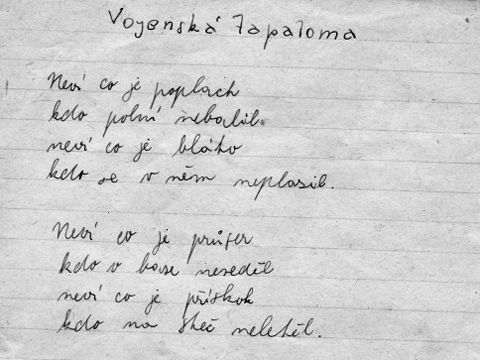 Voyenská Zapaloma
Neví co je poplach
kdo polní nebalil.
neví co je bláto
kdo se v něm neplazil.
Neví co je průser
kdo v base neseděl
neví co je přískok
kdo na steč neletěl.